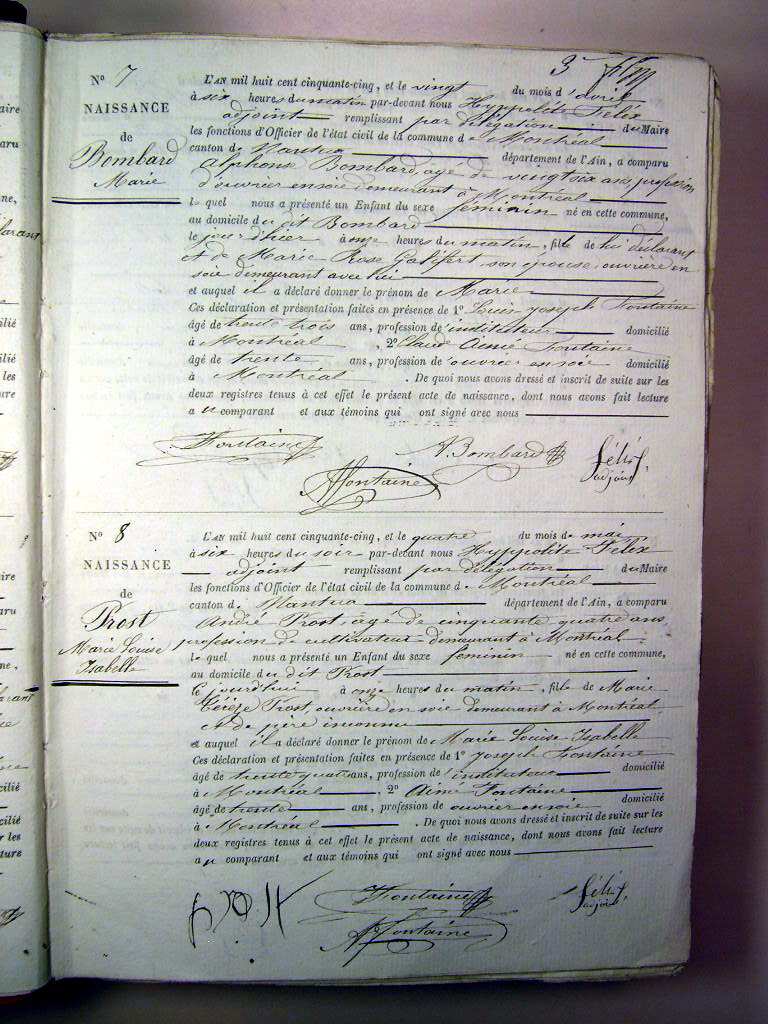 3
N° 7
NAISSANCE
de
Bombard
Marie
L'AN mil huit cent cinquante-cinq, et le vingt du mois d'avril
à six heures du matin par-devant nous Hyppolite Félix
adjoint remplissant par délégation du Maire
les fonctions d'Officier de l'état civil de la commune de Montréal
canton de Nantua département de l'Ain, a comparu
Alphonse Bombard, agé de vingt six ans, profession
d'ouvrier en soie demeurant à Montréal
le quel nous a présenté un Enfant du sexe féminin né en cette commune,
au domicile du dit Bombard
le jour d'hier à onze heures du matin, fille de lui déclarant
et de Marie Rose Galifert son épouse, ouvrière en
soie demeurant avec lui
et auquel il a déclaré donner le prénom de Marie
Ces déclaration et présentation faites en présence de 1° Louis Joseph Fontaine
âgé de trente trois ans, profession d'instituteur domicilié
à Montréal . 2° Claude Aimé Fontaine
âgé de trente ans, profession d'ouvrier en soie domicilié
à Montréal . De quoi nous avons dressé et inscrit de suite sur les
deux registres tenus à cet effet le présent acte de naissance, dont nous avons fait lecture
au comparant et aux témoins qui ont signé avec nous
Fontaine A. Bombard Félix
adjoint
Fontaine
N° 8
NAISSANCE
de
Prost
Marie Louise
Isabelle
L'AN mil huit cent cinquante-cinq, et le quatre du mois de mai
à six heures du soir par-devant nous Hyppolite Félix
adjoint remplissant par délégation du Maire
les fonctions d'Officier de l'état civil de la commune de Montréal
canton de Nantua département de l'Ain, a comparu
André Prost, agé de cinquante quatre ans
profession de cultivateur demeurant à Montréal
le quel nous a présenté un Enfant du sexe féminin né en cette commune,
au domicile du dit Prost
ce jourd'hui à onze heures du matin, fille de Marie
Prost, ouvrière en soie demeurant à Montréal
et de père inconnu
et auquel il a déclaré donner le prénom de Marie Louise Isabelle
Ces déclaration et présentation faites en présence de 1° Joseph Fontaine
âgé de trente quatre ans, profession d'instituteur domicilié
à Montréal . 2° Aimé Fontaine
âgé de trente ans, profession de ouvrier en soie domicilié
à Montréal . De quoi nous avons dressé et inscrit de suite sur les
deux registres tenus à cet effet le présent acte de naissance, dont nous avons fait lecture
au comparant et aux témoins qui ont signé avec nous
Fontaine Félix
adjoint
Fontaine